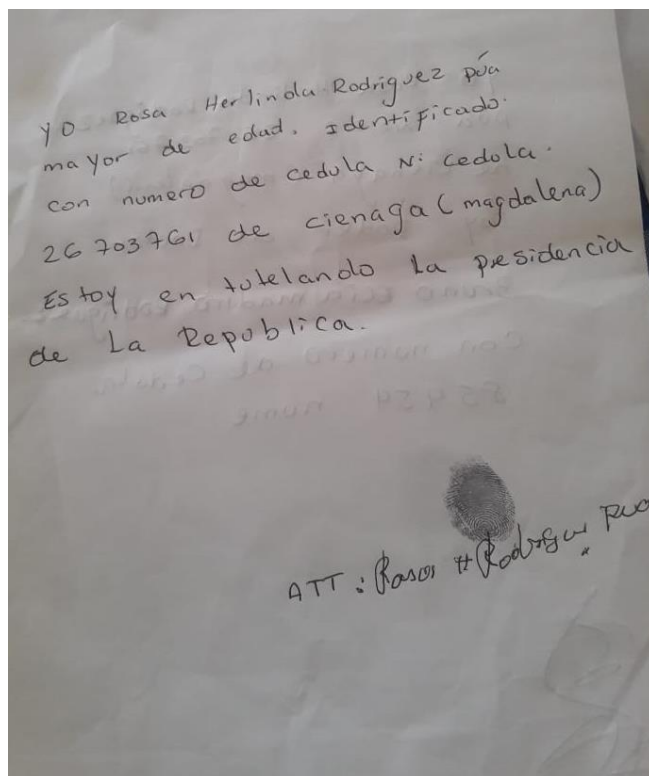 yo Rosa Herlinda Rodriguez púa
mayor de edad. identificado.
con numero de cedula N: cedola.
26 703761 de cienaga (magdalena)
Estoy en tutelando La presidencia
de La Republica.
ATT: Rosa H Rodriguez